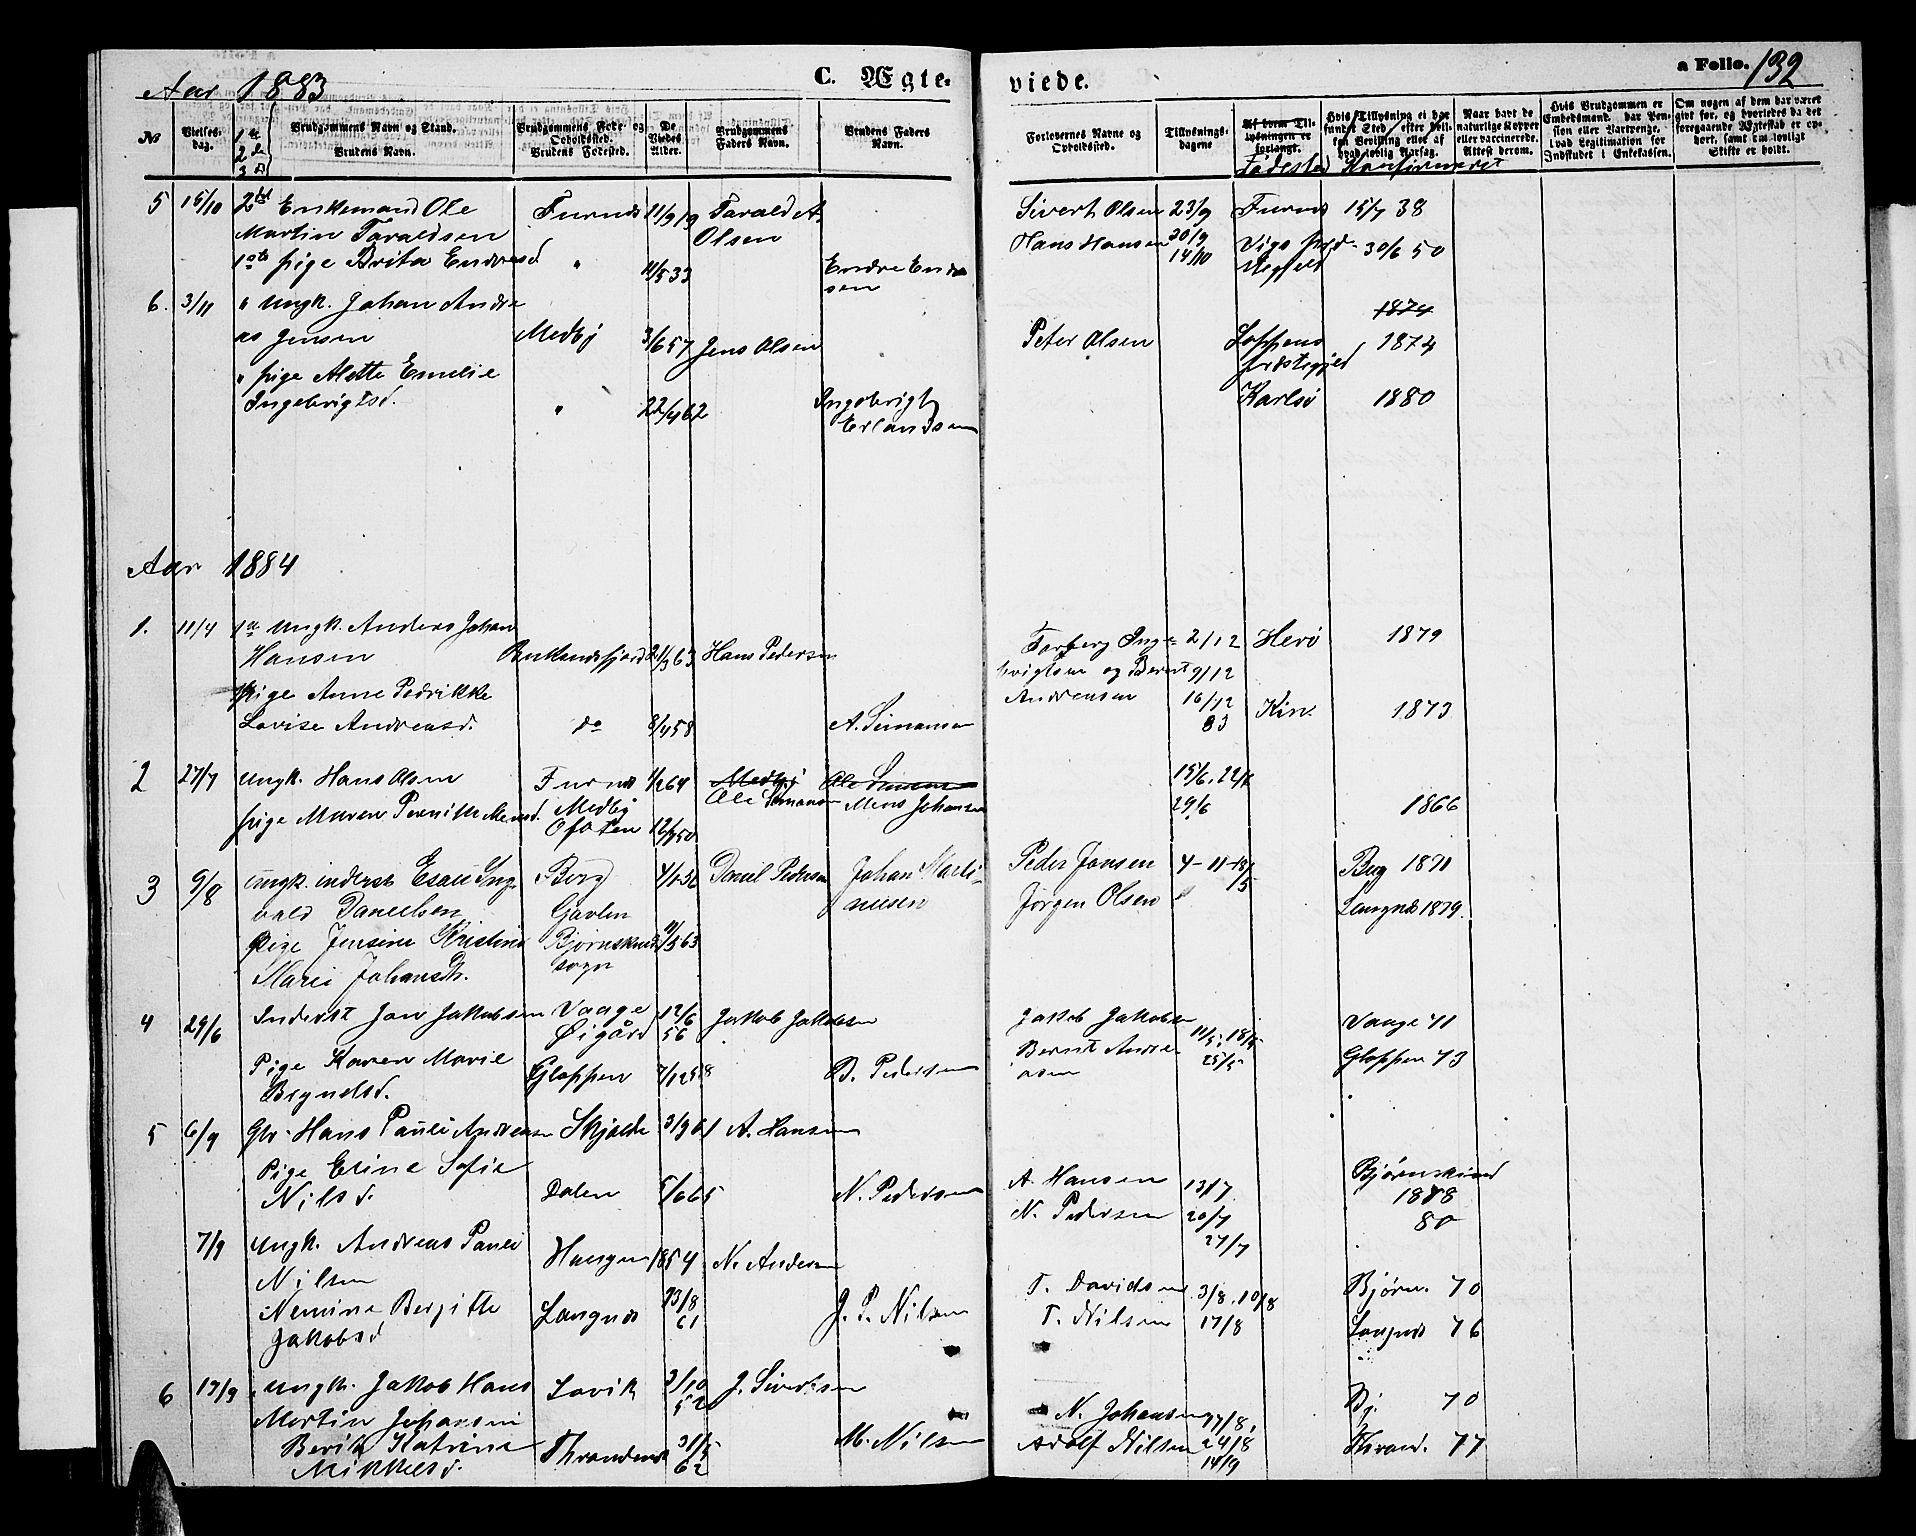 Aar 1883
C. Ægte-
viede.
a Folio. 132
No
Vielses-
dag.
1ste
2de
3
Brudgommens Navn og Stand.
Brudens Navn.
Brudgommens Føde- og
Opholdssted.
Brudens Fødested.
De
Viedes
Alder.
Brudgommens
Faders Navn.
Brudens Faders
Navn.
Forlovernes Navne og
Opholdssted.
Tillysnings-
dagene
Af hvem Til-
lysningen er
forlangt.
Fødested
Hvis Tillysning ei har
fundet Sted, efter hvil-
ken Bevilling eller af
hvad lovlig Aarsag.
Konfirmeret
Naar havt de
naturlige Kopper
eller vaccinerede.
Attest derom.
Hvis Brudgommen er
Embedsmand, har Pen-
sion eller Vartpenge,
hvad Legitimation for
Indskudet i Enkekassen.
Om nogen af dem har været
gift før, og hvorledes da det
foregaaende Ægteskab er op-
hørt, samt om lovligt
Skifte er holdt.
5 15/10 2det Enkemand Ole Furnes 11/9 19 Tarald A. Sivert Olsen 23/9 Furnes 15/7 38
Martin Taraldsen Olsen Hans Hansen 30/9
1ste pige Brita Endresd " 11/5 33 Endre Endre 14/10 Vigs prd- 30/6 50
sen stegjeld
6. 3/11 " Ungk. Johan Andre 1874
as Jensen Medby 3/6 57 Jens Olsen Peter Olsen Loppens 1874
prestegjeld
" pige Alette Emelie
Ingebrigtsd. " 22/4 62 Ingebrigt Karlsø 1880
Erlandsen
Aar 1884
1. 11/4 1ste Ungk. Anders Johan
Hansen Buklandsfjord 21/3 63 Hans Pedersen Torberg Inge- 2/12 Herø 1879
brigtsen og Bernt 9/12
pige Anne Pedrikke Andreasen 16/12
Lovise Andreasd. do 8/4 58 A. Simonsen 83 Kin. 1873
2 27/7 Ungk. Hans Olsen Furnes 1/2 64 Medby Ole Simonsen 15/6, 22/6
Medby Ole Simonsen Mons Johansen 29/6 1866
pige Maren Pernille Monsd. Ofoten 12/7 50
3 9/8 Ungk. inderst Esau Ing- Berg 4/1 52 Daniel Pedersen Johan Marti- Peder Jansen 4-11-18/5 Berg 1871
vald Danielsen Gavlen nusen Jørgen Olsen Langnes 1879.
Pige Jensine Kristine Bjørnskind 11/5 63
Marie Johansdt. sogn
4 29/6 Inderst Jan Jakobsen Vaage 12/6 Jakob Jakobsen Jakob Jakobsen 11/5, 18/5 Vaage 71
Øigård 56 Bernt Andre- 25/5 Gloppen 73
Pige Karen Marie Gloppen 7/12 58 B. Pedersen asen
Brynelsd.
5 6/9 Gbr. Hans Pauli Andreasen Skjolde 3/9 61 A. Hansen
Pige Eline Sofie Bjørnskind
Nilsd. Dalen 5/6 65 N. Pedersen A. Hansen 13/7 1878
N. Pedersen 20/7 80
27/7
7/9 Ungk. Andreas Pauli Haugen 1854 N. Andersen
Nilsen T. Davidsen 3/8, 10/8 Bjørn. 70
Nemine Bergitte Langnes 23/8 J. P. Nilsen T. Nilsen 17/8 Langnes 76
Jakobsd 61
6 17/9 Ungk. Jakob Hans Lavik 3/10 J. Sivertsen Bj. 70
Martin Johansen 52 N. Johansen 17/8,
Berit Katrine Thrandenes 31/5 M. Nilsen Adolf Nilsen 24/8 Thrand. 77
Mikkelsd. 62 14/9